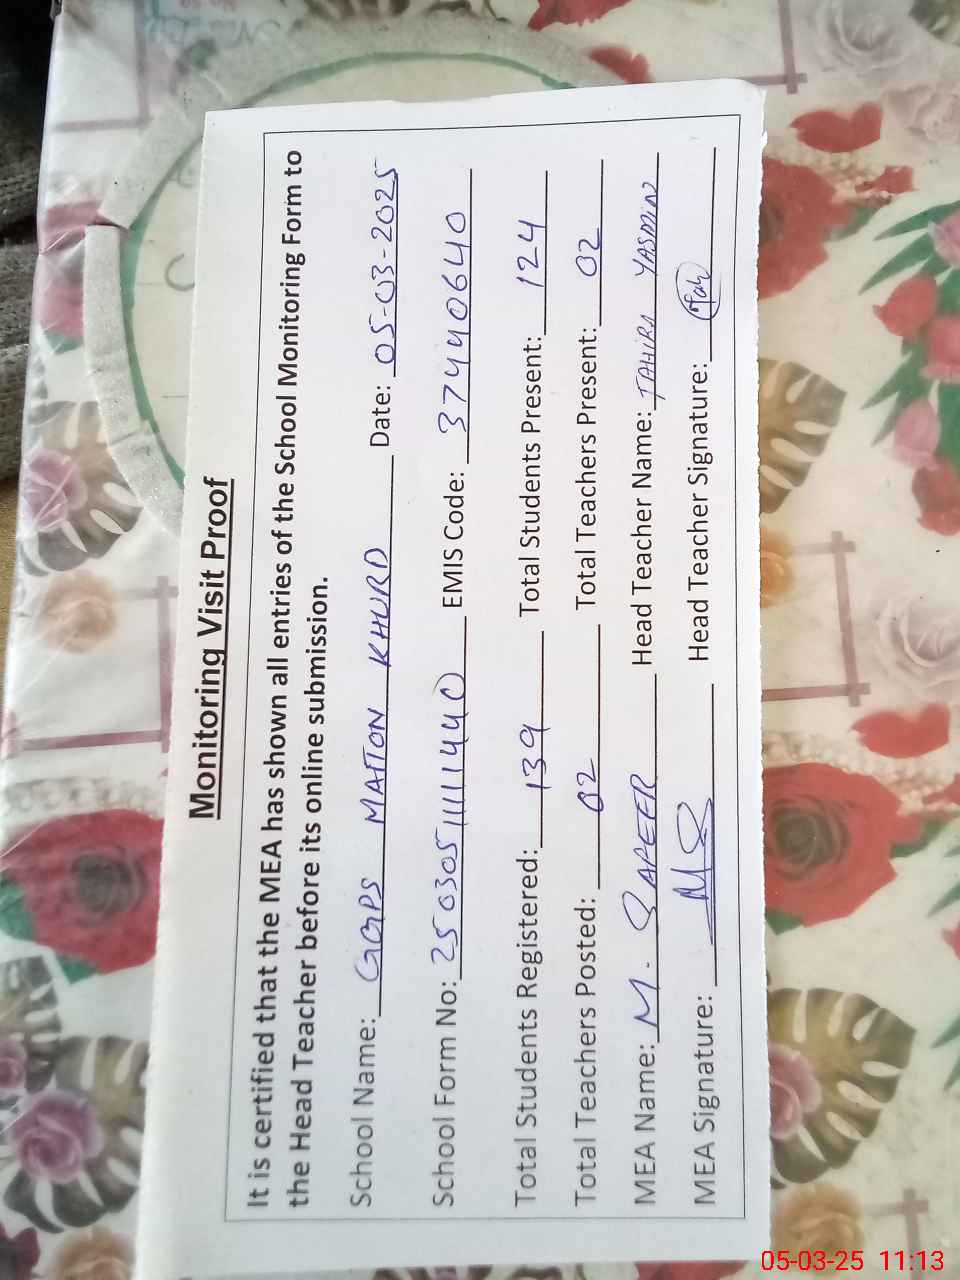 Monitoring Visit Proof
It is certified that the MEA has shown all entries of the School Monitoring Form to
the Head Teacher before its online submission.
School Name: GGPS MATTON KHURD Date: 05-03-2025
School Form No: 25030511111440 EMIS Code: 37440640
Total Students Registered: 139 Total Students Present: 124
Total Teachers Posted: 02 Total Teachers Present: 02
MEA Name: M. SAFEER Head Teacher Name: TAHIRA YASMIN
MEA Signature: MS Head Teacher Signature:
05-03-25 11:13